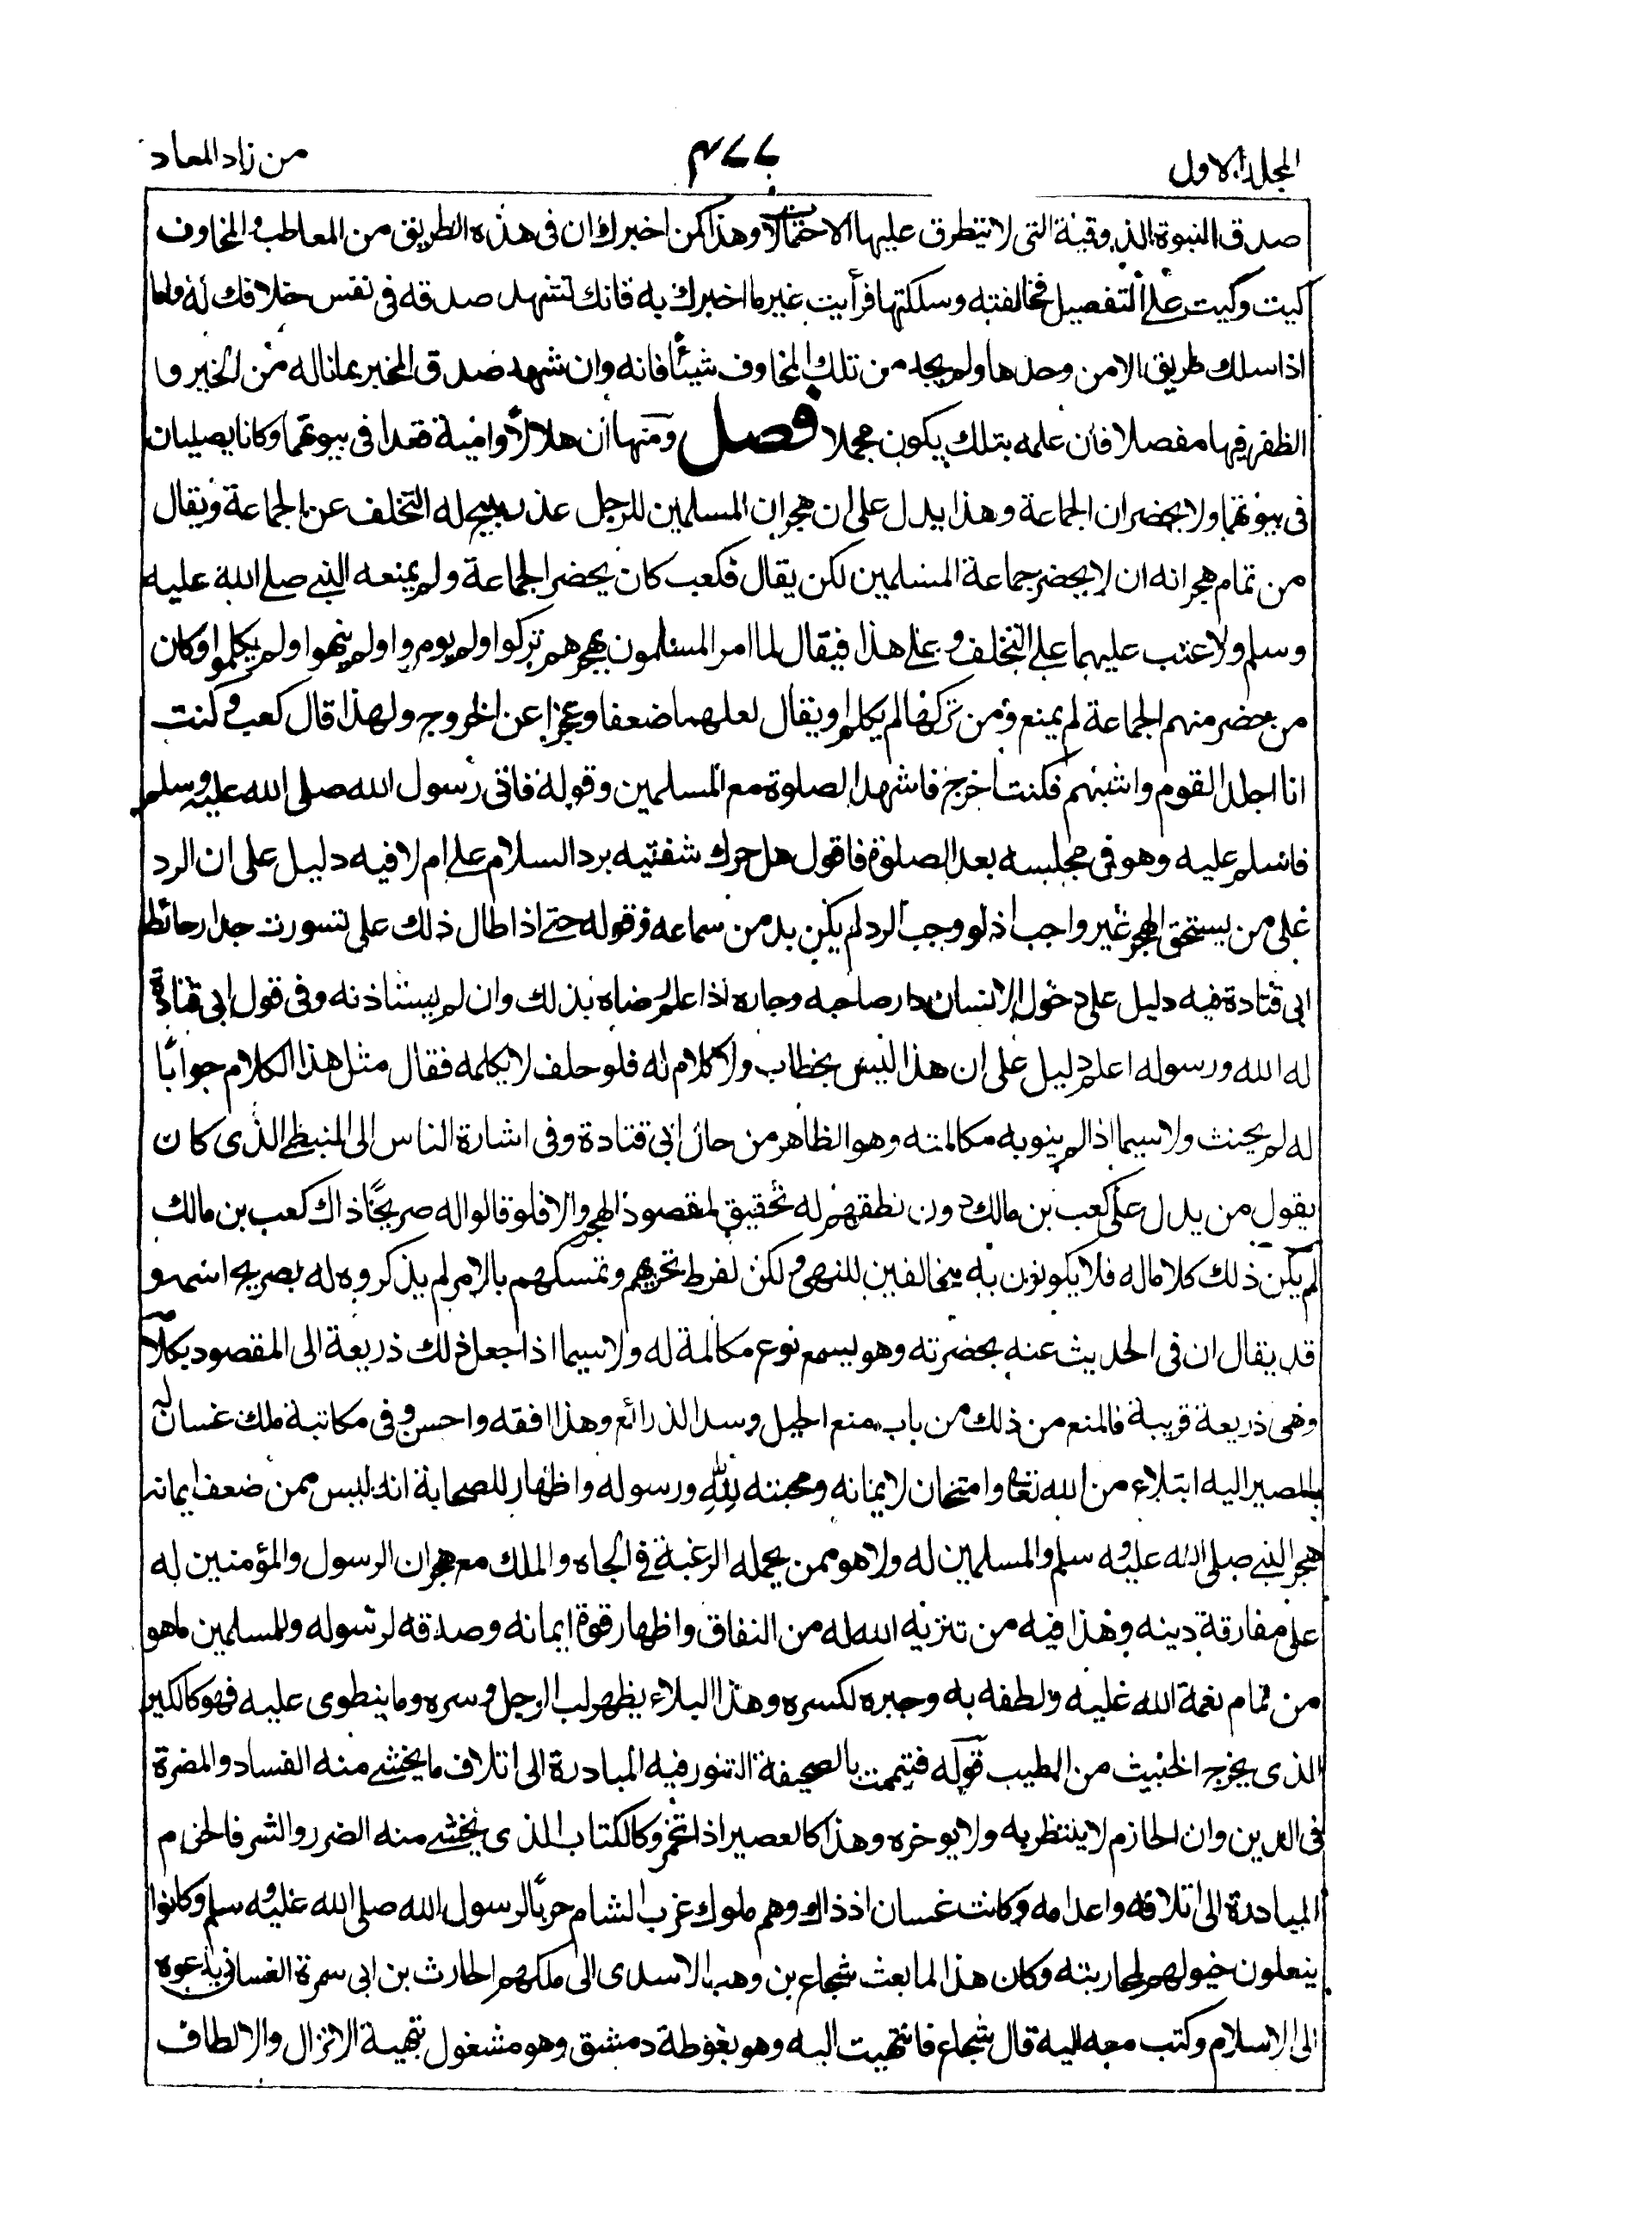 المجلد الاول
٤٧٧
من زاد المعاد
صدق النبوة الذوقية التى لا تتطرق عليها الاحتمالات وهذا كمن اخبرك ان فى هذه الطريق من المعاطب والمخاوف
كيت وكيت على التفصيل فخالفته وسلكتها فرأيت غير ما اخبرك به فانك تشهد صدقه فى نفس خلافك له واما
اذا سلك طريق الامن وحدها ولم يجد من تلك المخاوف شيئا فانه وان شهد صدق المخبر بما ناله من الخير و
الظفر فيها مفصلا فان علمه بتلك يكون مجملا فصل ومنها ان هلالا وامية قعدا فى بيوتهما وكانا يصليان
فى بيوتهما ولا يحضران الجماعة وهذا يدل على ان هجران المسلمين للرجل عذر يبيح له التخلف عن الجماعة ويقال
من تمام هجرانه ان لا يحضر جماعة المسلمين لكن يقال فكعب كان يحضر الجماعة ولم يمنعه النبى صلى الله عليه
وسلم ولا عتب عليهما على التخلف وعلى هذا فيقال لما امر المسلمون بهجرهم تركوا ولم يومروا ولم ينهوا ولم يكلموا وكان
من حضر منهم الجماعة لم يمنع ومن تركها لم يكلم او يقال لعلهما ضعفا وعجزا عن الخروج ولهذا قال كعب وكنت
انا اجلد القوم واشبهم فكنت اخرج فاشهد الصلوة مع المسلمين وقوله فاتى رسول الله صلى الله عليه وسلم
فاسلم عليه وهو فى مجلسه بعد الصلوة فاقول هل حرك شفتيه برد السلام على ام لا فيه دليل على ان الرد
على من يستحق الهجر غير واجب اذ لو وجب الرد لم يكن بد من سماعه وقوله حتى اذا طال ذلك على تسورت جدار حائط
ابى قتادة فيه دليل على دخول الانسان دار صاحبه وجاره اذا علم رضاه بذلك وان لم يستاذنه وفى قول ابى قتادة
له الله ورسوله اعلم دليل على ان هذا ليس بخطاب ولا كلام له فلو حلف لا يكلمه فقال مثل هذا الكلام جوابا
له لم يحنث ولا سيما اذا لم ينو به مكالمته وهو الظاهر من حال ابى قتادة وفى اشارة الناس الى النبطى الذى كان
يقول من يدل على كعب بن مالك دون نطقهم له تحقيق لمقصود الهجر والا فلو قالوا له صريحا ذاك كعب بن مالك
لم يكن ذلك كلاما له فلا يكونون به مخالفين للنهى ولكن لفرط تحريهم وتمسكهم بالامر لم يذكروه له بصريح اسمه و
قد يقال ان فى الحديث عنه بحضرته وهو يسمع نوع مكالمة له ولا سيما اذا جعل ذلك ذريعة الى المقصود بكلامه
وهى ذريعة قريبة فالمنع من ذلك من باب منع الحيل وسد الذرائع وهذا افقه واحسن وفى مكاتبة ملك غسان له
بالمصير اليه ابتلاء من الله تعالى وامتحان لايمانه ومحبته لله ورسوله واظهار للصحابة انه ليس ممن ضعف ايمانه
هجر النبى صلى الله عليه وسلم والمسلمين له ولا هو ممن يحمله الرغبة فى الجاه والملك مع هجران الرسول والمؤمنين له
على مفارقة دينه وهذا فيه من تنزيه الله له من النفاق واظهار قوة ايمانه وصدقه لرسوله وللمسلمين ما هو
من تمام نعمة الله عليه ولطفه به وجبره لكسره وهذا البلاء يظهر لب الرجل وسره وما ينطوى عليه فهو كالكير
الذى يخرج الخبيث من الطيب قوله فتيممت بالصحيفة التنور فيه المبادرة الى اتلاف ما يخشى منه الفساد والمضرة
فى الدين وان الحازم لا ينتظر به ولا يوخره وهذا كالعصير اذا تخمر وكالكتاب الذى يخشى منه الضرر والشر فالحزم
المبادرة الى اتلافه واعدامه وكانت غسان اذ ذاك وهم ملوك عرب الشام حربا لرسول الله صلى الله عليه وسلم وكانوا
ينعلون خيولهم لمحاربته وكان هذا لما بعث شجاع بن وهب الاسدى الى ملكهم الحارث بن ابى سمرة الغسانى يدعوه
الى الاسلام وكتب معه اليه قال شجاع فانتهيت اليه وهو بغوطة دمشق وهو مشغول بتهيية الانزال والالطاف